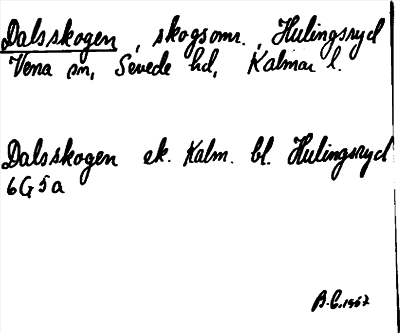 Dalsskogen, skogsomr., Hulingsryd
Vena sn, Sevede hd, Kalmar l.
Dalsskogen ek. Kalm. bl. Hulingsryd
6G5a
A.E. 1967